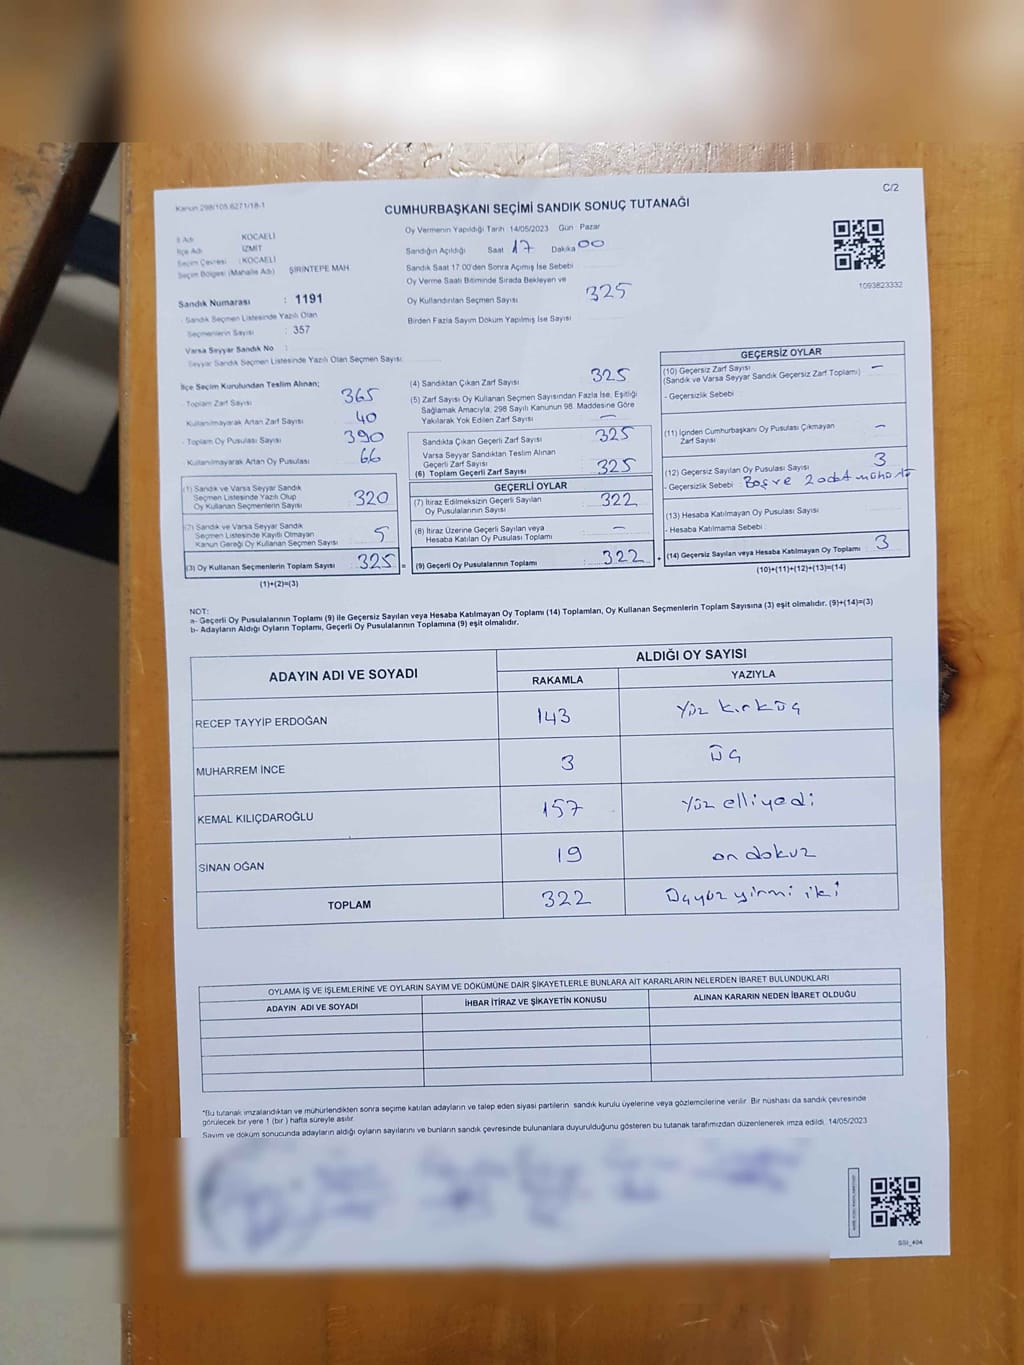 C/2
Kanun 298/105.6271/18-1
CUMHURBAŞKANI SEÇİMİ SANDIK SONUÇ TUTANAĞI
İl Adı : KOCAELİ
İlçe Adı : İZMİT
Seçim Çevresi : KOCAELİ
Seçim Bölgesi (Mahalle Adı) : ŞİRİNTEPE MAH
Sandık Numarası : 1191
- Sandık Seçmen Listesinde Yazılı Olan
Seçmenlerin Sayısı : 357
Varsa Seyyar Sandık No :
Seyyar Sandık Seçmen Listesinde Yazılı Olan Seçmen Sayısı:
Oy Vermenin Yapıldığı Tarih 14/05/2023 Gün Pazar
Sandığın Açıldığı Saat 17 Dakika 00
Sandık Saat 17 00'den Sonra Açımış İse Sebebi
Oy Verme Saati Bitiminde Sırada Bekleyen ve
Oy Kullandırılan Seçmen Sayısı 325
Birden Fazla Sayım Döküm Yapılmış İse Sayısı
1093823332
İlçe Seçim Kurulundan Teslim Alınan;
- Toplam Zarf Sayısı 365
Kullanılmayarak Artan Zarf Sayısı 40
- Toplam Oy Pusulası Sayısı 390
- Kullanılmayarak Artan Oy Pusulası 66
(1) Sandık ve Varsa Seyyar Sandık
Seçmen Listesinde Yazılı Olup
Oy Kullanan Seçmenlerin Sayısı 320
(2) Sandık ve Varsa Seyyar Sandık
Seçmen Listesinde Kayıtlı Olmayan
Kanun Gereği Oy Kullanan Seçmen Sayısı 5
(3) Oy Kullanan Seçmenlerin Toplam Sayısı 325 =
(1)+(2)=(3)
(4) Sandıktan Çıkan Zarf Sayısı 325
(5) Zarf Sayısı Oy Kullanan Seçmen Sayısından Fazla İse, Eşitliği
Sağlamak Amacıyla; 298 Sayılı Kanunun 98. Maddesine Göre
Yakılarak Yok Edilen Zarf Sayısı —
Sandıkta Çıkan Geçerli Zarf Sayısı 325
Varsa Seyyar Sandıktan Teslim Alınan
Geçerli Zarf Sayısı
(6) Toplam Geçerli Zarf Sayısı 325
GEÇERLİ OYLAR
(7) İtiraz Edilmeksizin Geçerli Sayılan
Oy Pusulalarının Sayısı 322
(8) İtiraz Üzerine Geçerli Sayılan veya
Hesaba Katılan Oy Pusulası Toplamı —
(9) Geçerli Oy Pusulalarının Toplamı 322 +
GEÇERSİZ OYLAR
(10) Geçersiz Zarf Sayısı —
(Sandık ve Varsa Seyyar Sandık Geçersiz Zarf Toplamı)
- Geçersizlik Sebebi
(11) İçinden Cumhurbaşkanı Oy Pusulası Çıkmayan
Zarf Sayısı —
(12) Geçersiz Sayılan Oy Pusulası Sayısı 3
- Geçersizlik Sebebi : Boş ve 2 adet
(13) Hesaba Katılmayan Oy Pusulası Sayısı
- Hesaba Katılmama Sebebi :
(14) Geçersiz Sayılan veya Hesaba Katılmayan Oy Toplamı 3
(10)+(11)+(12)+(13)=(14)
NOT:
a- Geçerli Oy Pusulalarının Toplamı (9) ile Geçersiz Sayılan veya Hesaba Katılmayan Oy Toplamı (14) Toplamları, Oy Kullanan Seçmenlerin Toplam Sayısına (3) eşit olmalıdır. (9)+(14)=(3)
b- Adayların Aldığı Oyların Toplamı, Geçerli Oy Pusulalarının Toplamına (9) eşit olmalıdır.
ADAYIN ADI VE SOYADI
ALDIĞI OY SAYISI
RAKAMLA YAZIYLA
RECEP TAYYİP ERDOĞAN 143 Yüz kırküç
MUHARREM İNCE 3 üç
KEMAL KILIÇDAROĞLU 157 Yüz elliyedi
SİNAN OĞAN 19 on dokuz
TOPLAM 322 üçyüz yirmi iki
OYLAMA İŞ VE İŞLEMLERİNE VE OYLARIN SAYIM VE DÖKÜMÜNE DAİR ŞİKAYETLERLE BUNLARA AİT KARARLARIN NELERDEN İBARET BULUNDUKLARI
ADAYIN ADI VE SOYADI İHBAR İTİRAZ VE ŞİKAYETİN KONUSU ALINAN KARARIN NEDEN İBARET OLDUĞU
*Bu tutanak imzalandıktan ve mühürlendikten sonra seçime katılan adayların ve talep eden siyasi partilerin sandık kurulu üyelerine veya gözlemcilerine verilir. Bir nüshası da sandık çevresinde
görülecek bir yere 1 (bir) hafta süreyle asılır.
Sayım ve döküm sonucunda adayların aldığı oyların sayılarını ve bunların sandık çevresinde bulunanlara duyurulduğunu gösteren bu tutanak tarafımızdan düzenlenerek imza edildi. 14/05/2023
SSI_404